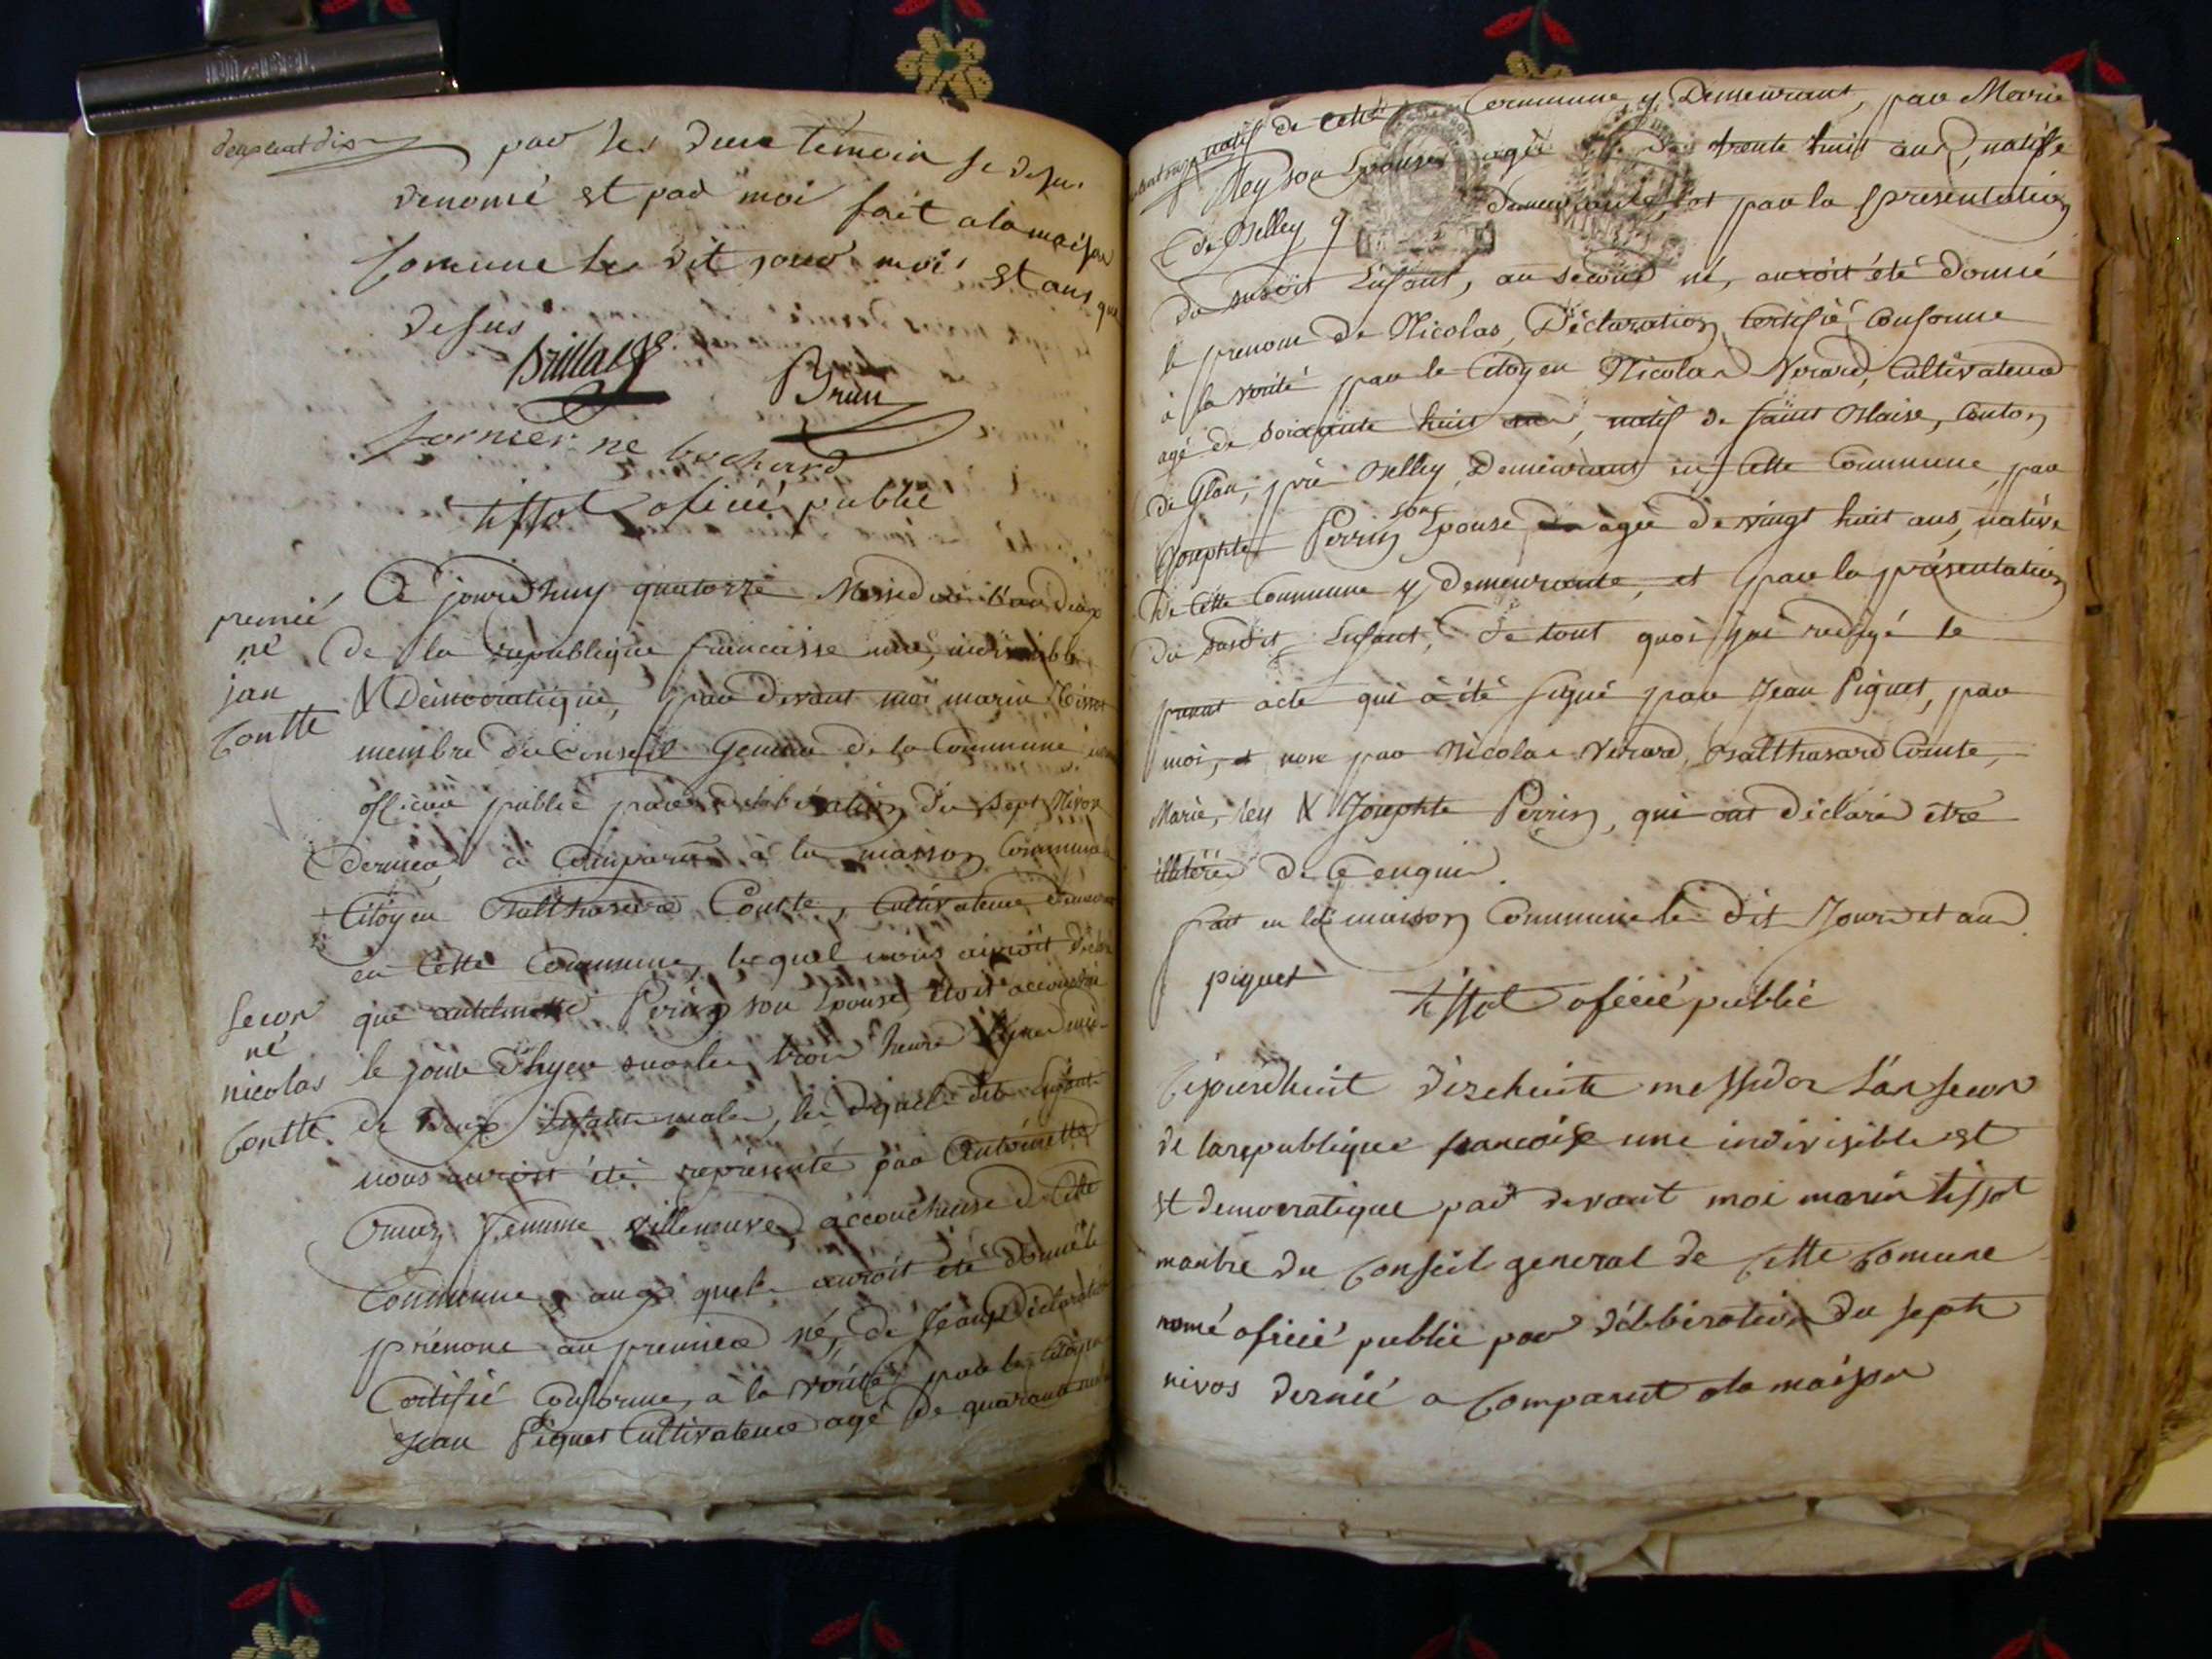 deux cent dix
par les deux témoin se desus
denomé et par moi fait a la maison
Comune les dit jour moi et ans que
desus
Brun
fornier ne bochard
tissot oficié public
premié
né
jan
Contte
Ce jourdhuy quatorze Messidor l'an deux
de la republique francaisse une, indivisible
& Démocratique, par devant moi marin Tissot
membre du Conseil General de la Commune
officier public par deliberation du sept Nivos
dernier à Comparu à la maison Commune
Citoyen Balthasard Contte, Cultivateur demeurant
en Cette Commune, lequel nous auroit déclaré
Secon
né
nicolas
Contte
que antoinette Perrin son Epouse etoit accouchée
le jour d'hyer sur les trois heures
de deux Enfants males, les dequels dits Enfants
nous auroit été représenté par Antoinette
femme villeneuve, accoucheuse de Cette
Commune, auquels auroit été donné le
prénom au premier né, de Jean, Déclaration
Certifié Conforme, à la vérité par le Citoyen
Jean Piguet Cultivateur agé de quarante
natif de Cette Commune y Demeurant, par Marie
Rey son Epouse agée de trente huit ans, natifse
de Belley demeurante, et par la presentation
du susdit Enfant, au second né, auroit été donné
le prenom de Nicolas, Déclaration Certifié Conforme
à la verité par le Citoyen Nicolas Verard, Cultivateur
agé de soixante huit ans, natif de saint Blaise, Conton
de Glan, prè Belley, Demeurant en Cette Commune, par
Josephte Perrin son Epouse agée de vingt huit ans, native
de Cette Commune y demeurante, et par la présentation
du susdit Enfant, de tout quoi j'ai redigé le
present acte qui à été signé par Jean Piguet, par
moi, et non par Nicolas Verard, Balthasard Contte,
Marie, Rey & Josephte Perrin, qui ont déclaré être
illitérés de Ce enquis.
fait en la maison Commune le dit Jour et an
piguet
tissot oficié public
Cejourdhuit dizehuite messidor l'an secon
de larepublique francoise une indivisible et
et democratique par devant moi marin tissot
manbre du Conseil general de Cette Comune
nomé oficié public par délibération du septe
nivos dernié a Comparut a la maison